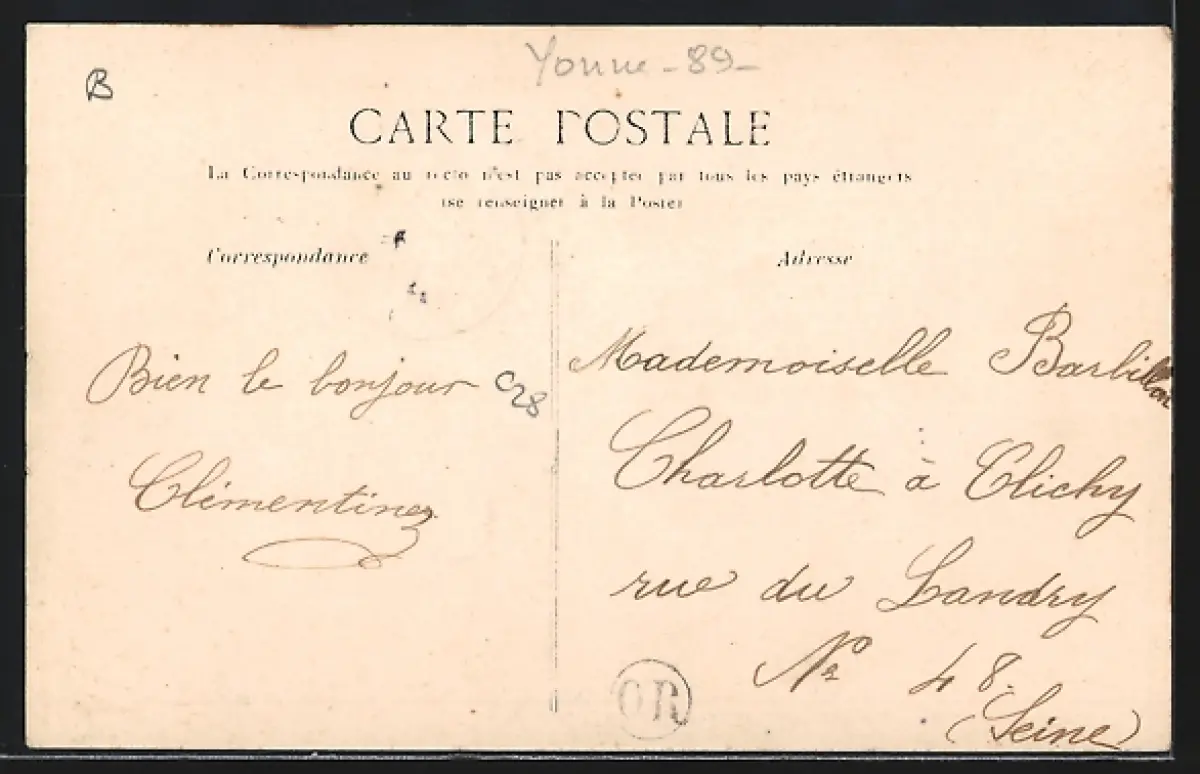 Yonne - 89 -
B
CARTE POSTALE
La Correspondance au recto n'est pas acceptée par tous les pays étrangers
(se renseigner à la Poste)
Correspondance
Adresse
Bien le bonjour
C28
Clémentine
Mademoiselle Barbillon
Charlotte à Clichy
rue du Landry
No 48.
(Seine)
OR